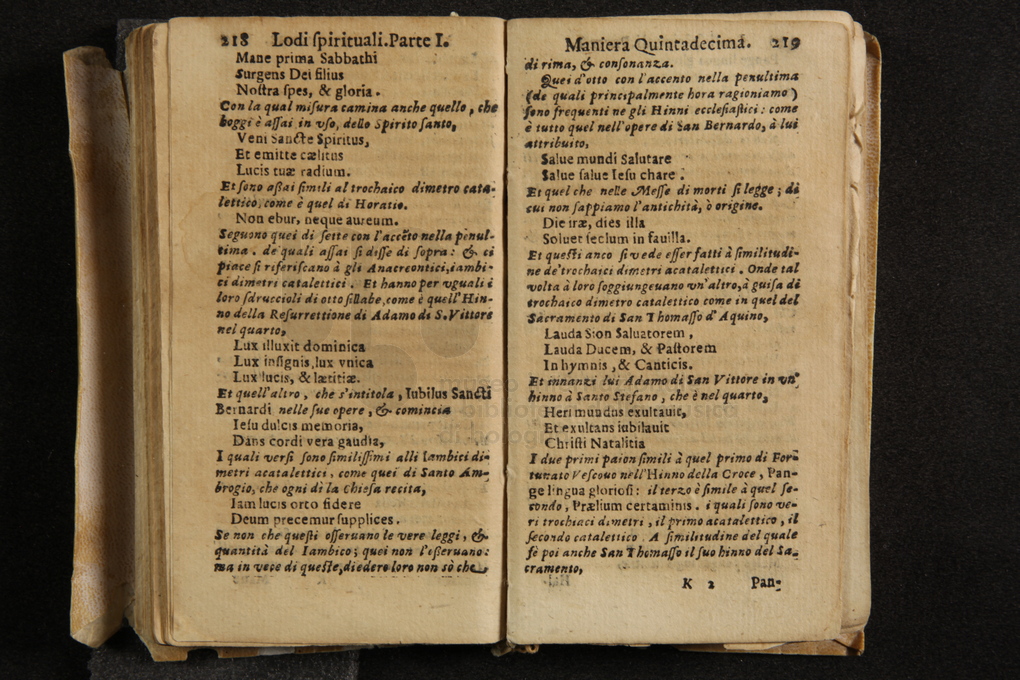 218 Lodi ſpirituali.Parte I.
Mane prima Sabbathi
Surgens Dei filius
Noſtra ſpes, & gloria.
Con la qual miſura camina anche quello, che
hoggi è aſſai in vſo, dello Spirito ſanto,
Veni Sancte Spiritus,
Et emitte cælitus
Lucis tuæ radium.
Et ſono aßai ſimili al trochaico dimetro cata-
lettico, come è quel di Horatio.
Non ebur, neque aureum.
Seguono quei di ſette con l'accẽto nella penul-
tima. de quali aſſai ſi diſſe di ſopra: & ci
piace ſi riferiſcano à gli Anacreontici, iambi-
ci dimetri catalettici. Et hanno per vguali i
loro ſdruccioli di otto ſillabe, come è quell' Hin-
no della Reſurrettione di Adamo di S. Vittore
nel quarto,
Lux illuxit dominica
Lux inſignis, lux vnica
Lux lucis, & lætitiæ.
Et quell'altro, che s'intitola, Iubilus Sancti
Bernardi nelle ſue opere, & comincia
Ieſu dulcis memoria,
Dans cordi vera gaudia,
I quali verſi ſono ſimiliſſimi alli Iambici di-
metri acatalettici, come quei di Santo Am-
brogio, che ogni dì la Chieſa recita,
Iam lucis orto ſidere
Deum precemur ſupplices.
Se non che queſti oſſeruano le vere leggi, &
quantità del Iambico; quei non l'oſſeruano:
ma in vece di queſte, diedero loro non sò che
Maniera Quintadecima. 219
di rima, & conſonanza.
Quei d'otto con l'accento nella penultima
(de quali principalmente hora ragioniamo)
ſono frequenti ne gli Hinni eccleſiaſtici: come
è tutto quel nell'opere di San Bernardo, à lui
attribuito,
Salue mundi Salutare
Salue ſalue Ieſu chare.
Et quel che nelle Meſſe di morti ſi legge; di
cui non ſappiamo l'antichità, ò origine.
Die iræ, dies illa
Soluet ſeclum in fauilla.
Et queſti anco ſi vede eſſer fatti à ſimilitudi-
ne de' trochaici dimetri acatalettici. Onde tal
volta à loro ſoggiungeuano vn'altro, à guiſa di
trochaico dimetro catalettico come in quel del
Sacramento di San Thomaſſo d' Aquino,
Lauda Sion Saluatorem,
Lauda Ducem, & Paſtorem
In hymnis, & Canticis.
Et innanzi lui Adamo di San Vittore in vn'
hinno à Santo Stefano, che è nel quarto,
Heri mundus exultauit,
Et exultans iubilauit
Chriſti Natalitia
I due primi paion ſimili à quel primo di For-
tunato Veſcouo nell'Hinno della Croce, Pan-
ge lingua glorioſi: il terzo è ſimile à quel ſe-
condo, Prælium certaminis. i quali ſono ve-
ri trochiaci dimetri, il primo acatalettico, il
ſecondo catalettico. A ſimilitudine del quale
fe poi anche San Thomaſſo il ſuo hinno del Sa-
cramento,
K 2 Pan-